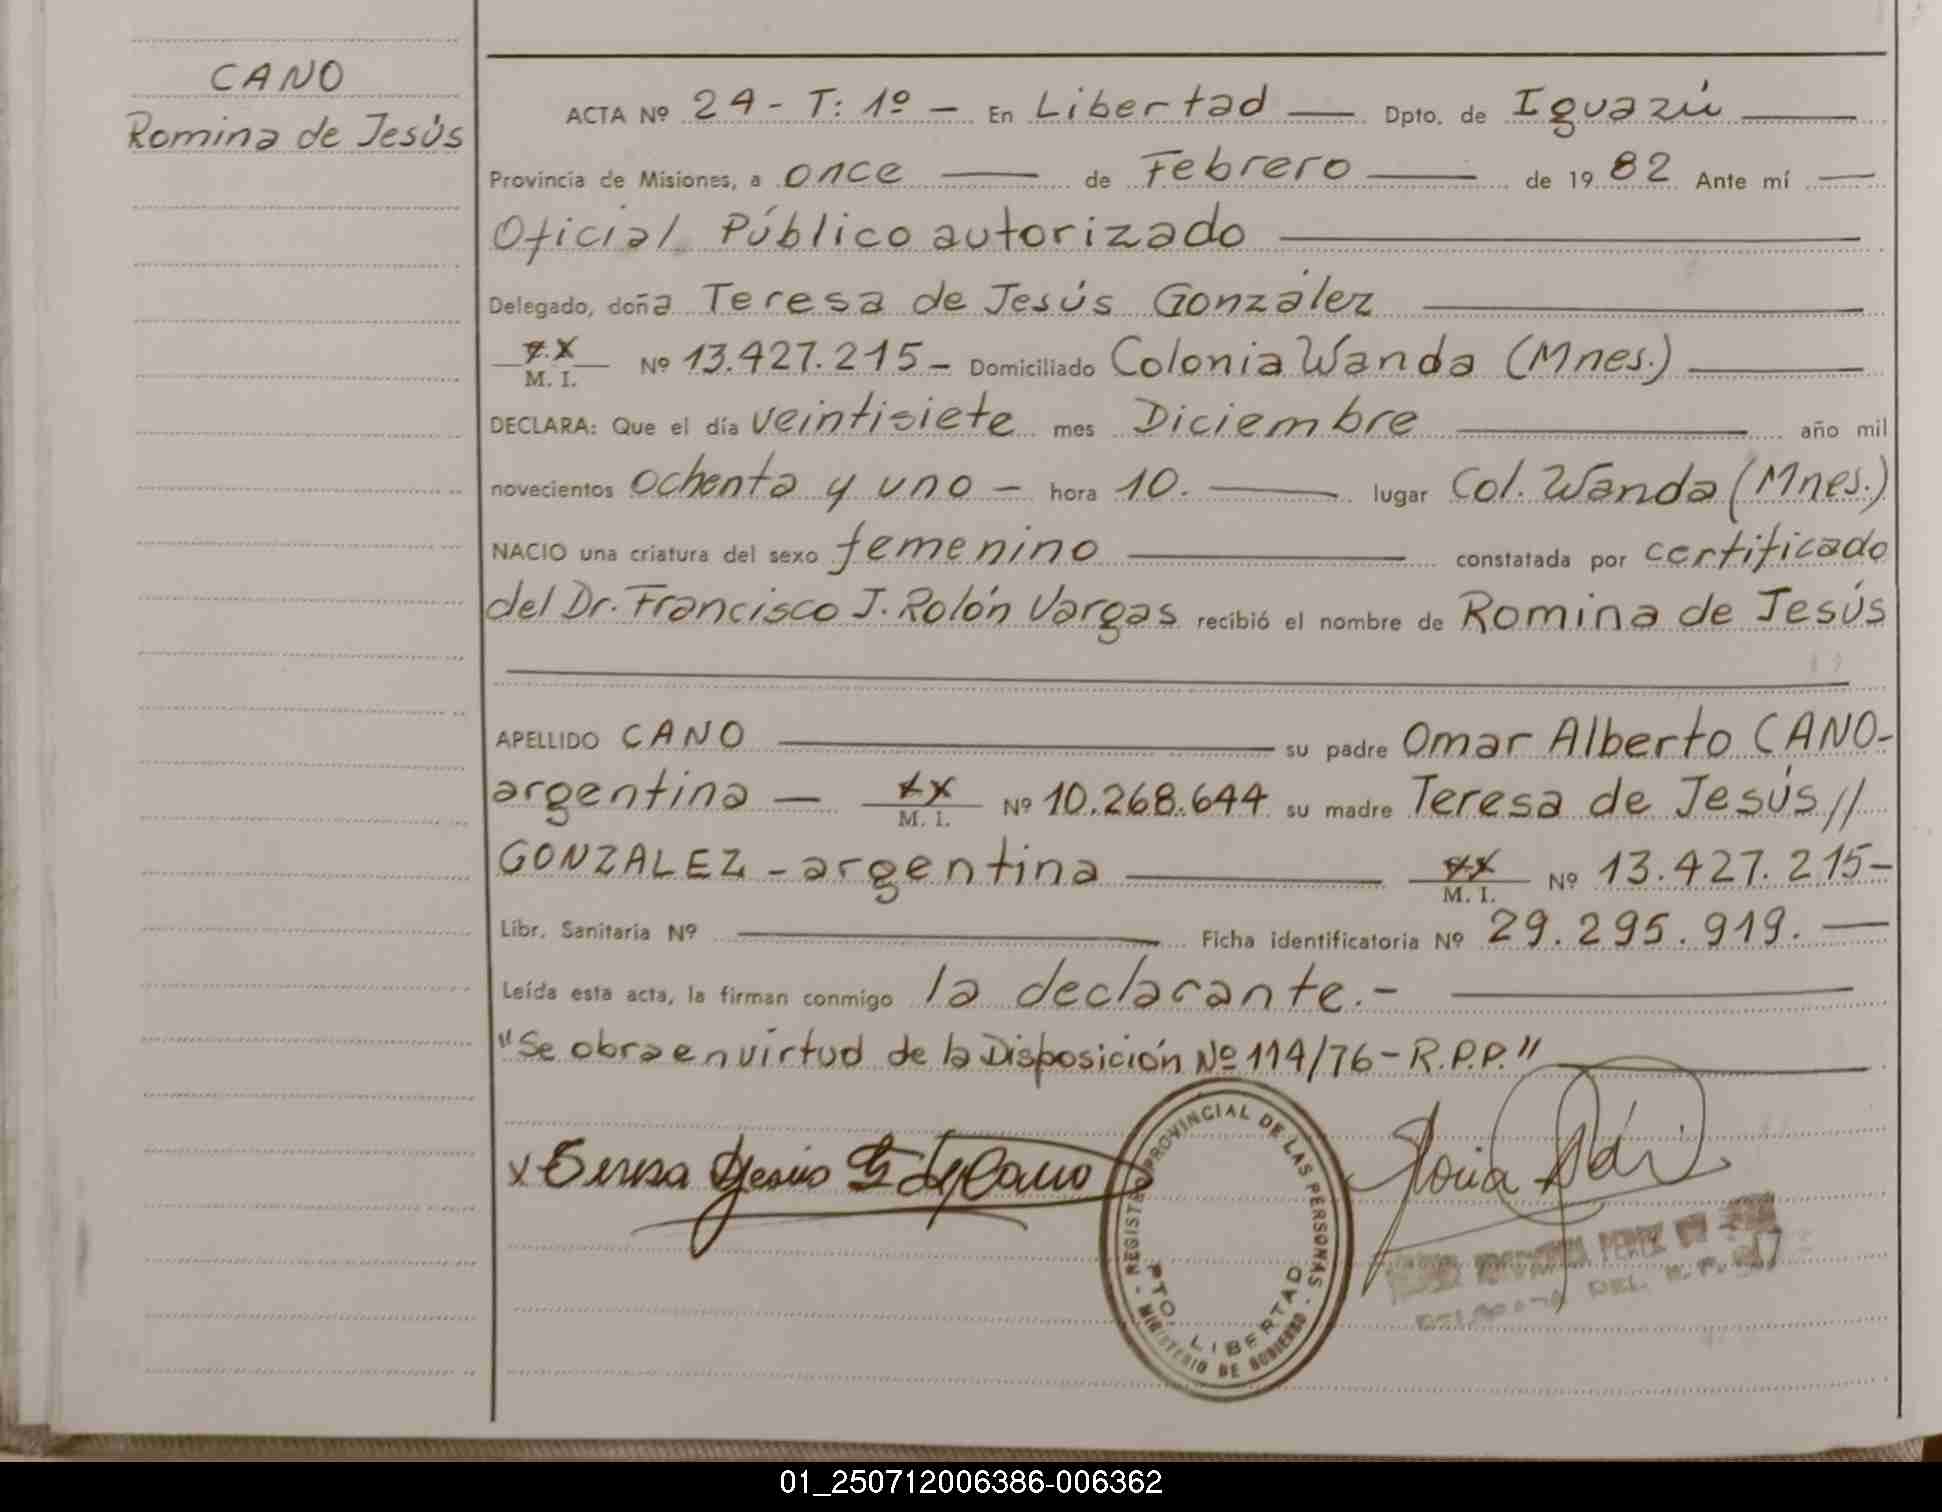 CANO
Romina de Jesús
ACTA Nº 24 - T: 1º - En Libertad Dpto. de Iguazú
Provincia de Misiones, a once de Febrero de 19 82 Ante mí
Oficial Público autorizado
Delegado, doña Teresa de Jesús González
M. I. Nº 13.427.215 - Domiciliado Colonia Wanda (Mnes.)
DECLARA: Que el día veintisiete mes Diciembre año mil
novecientos ochenta y uno - hora 10. lugar Col. Wanda (Mnes.)
NACIO una criatura del sexo femenino constatada por certificado
del Dr. Francisco J. Rolón Vargas recibió el nombre de Romina de Jesús
APELLIDO CANO su padre Omar Alberto CANO-
argentina — M. I. Nº 10.268.644 su madre Teresa de Jesús//
GONZALEZ - argentina M. I. Nº 13.427.215-
Libr. Sanitaria Nº Ficha identificatoria Nº 29.295.919.
Leída esta acta, la firman conmigo la declarante.-
"Se obra en virtud de la Disposición Nº 114/76 - R.P.P."
x Teresa Jesús G de Cano
REGISTRO PROVINCIAL DE LAS PERSONAS
- MINISTERIO DE GOBIERNO -
PTO. LIBERTAD
01_250712006386-006362